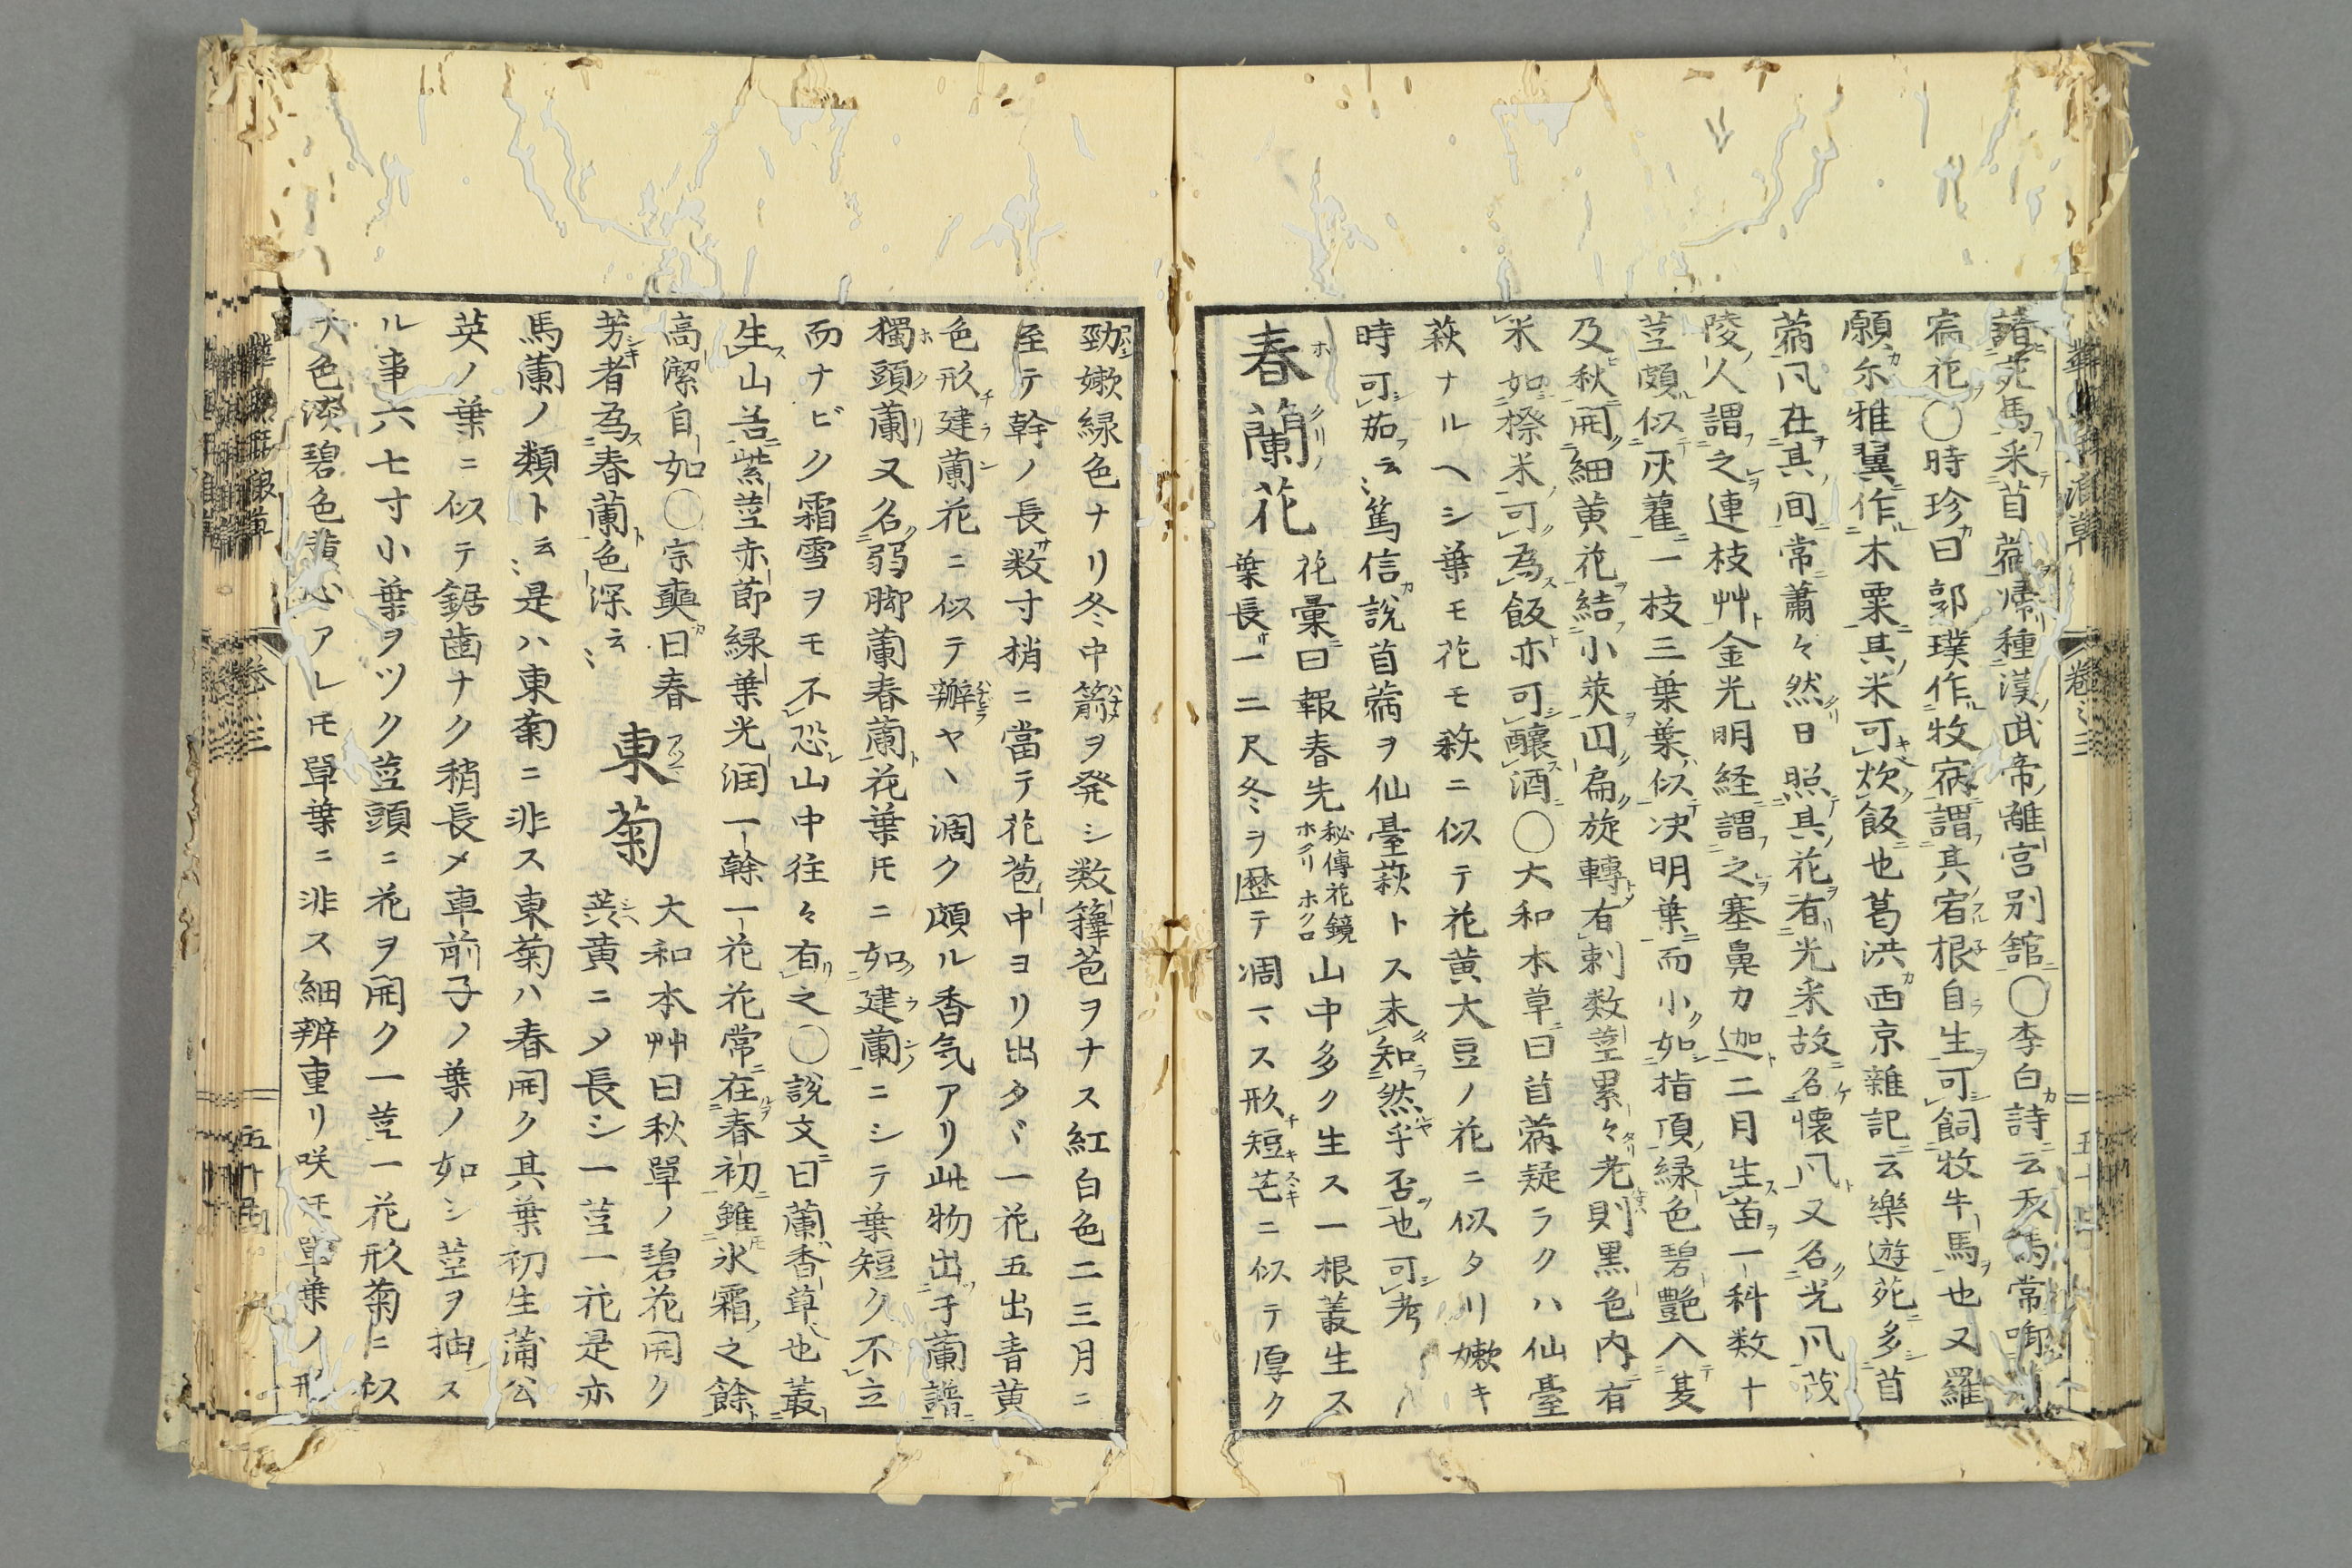 宛馬采首蓿歸種漢武帝離宮别舘〇李白詩云天馬常
宿花〇時珍曰郭璞作牧宿謂其宿根自生可飼牧牛馬也又羅
願尓雅翼作木粟其米可炊飯也葛洪西京雑記云樂遊苑多首
蓿凡在其间常蕭々然日照其花有光采故名懐凡又名光凡茂
陵人謂之連枝艸金光明経謂之塞鼻力迦二月生苗一科数十
莖頗似灰藋一枝三葉葉似决明葉而小如指頂緑色碧艶入夏
及秋開細黄花結小莢圓扁旋轉有刺数莖累々老則黒色内有
米如穄米可為飯亦可釀酒〇大和本草曰首蓿疑ラクハ仙臺
萩ナルヘシ葉モ花モ萩ニ似テ花黄大豆ノ花ニ似タリ嫩キ
時可茹云〻篤信說首蓿ヲ仙臺萩トス未知然乎否也可考
春蘭花
花彙曰報春先
秘傳花鏡
ホクリ ホクロ
山中多ク生ス一根叢生ス
葉長一二尺冬ヲ歴テ凋マス形短芒ニ似テ厚ク
勁嫩緑色ナリ冬中箭ヲ発シ数籜苞ヲナス紅白色二三月ニ
至テ幹ノ長数寸梢ニ當テ花苞中ヨリ出タヾ一花五出青黄
色形建蘭花ニ似テ瓣ヤヽ濶ク頗ル香気アリ此物出于蘭譜
獨頭蘭又名弱脚蘭春蘭花葉𪜈ニ如建蘭ニシテ葉短ク不立
而ナビク霜雪ヲモ不恐山中往々有之〇說文曰蘭香草也叢
生山谷紫莖赤節緑葉光润一幹一花花常在春初雖氷霜之餘
高潔自如〇宗奭曰春
芳者為春蘭色深云〻
東菊
大和本艸曰秋單ノ碧花開ク
蕊黄ニメ長シ一莖一花是亦
馬蘭ノ類ト云〻是ハ東菊ニ非ス東菊ハ春開ク其葉初生蒲公
英ノ葉ニ似テ鋸歯ナク稍長メ車前子ノ葉ノ如シ莖ヲ抽ス
ル事六七寸小葉ヲツク莖頭ニ花ヲ開ク一莖一花形菊ニ似
色淡碧色黄心アレ𪜈單葉ニ非ス細辨重リ咲𪜈單葉ノ形
卷三